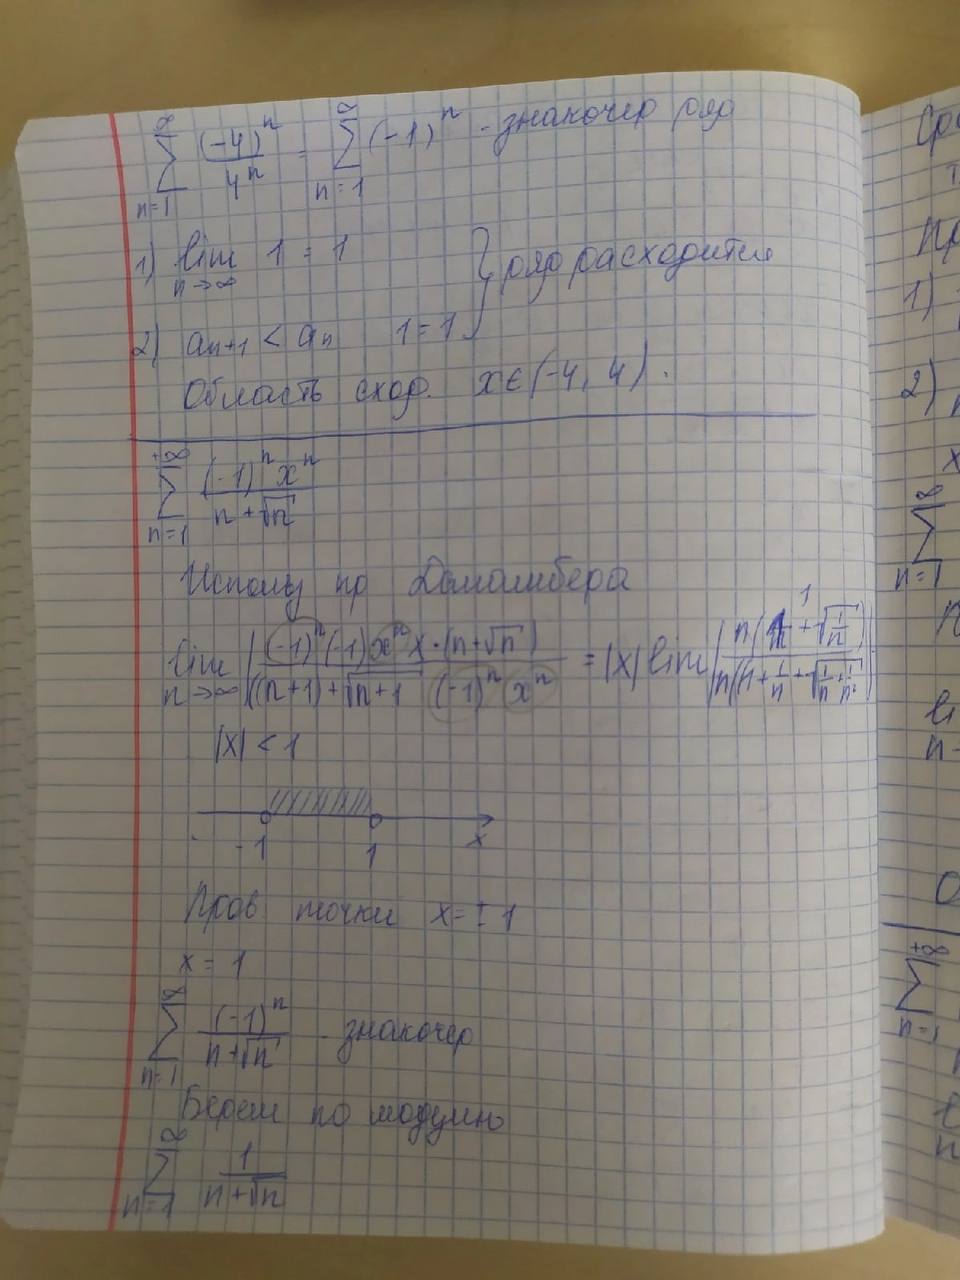 ∞ ∑ n=1 (-4)^n / 4^n = ∞ ∑ n=1 (-1)^n - знакочер ряд
1) lim n→∞ 1 = 1 } ряд расходится
2) a_{n+1} < a_n 1 = 1
Область сход. x ∈ (-4, 4).
+∞ ∑ n=1 (-1)^n x^n / n + √n
Использ пр Даламбера
lim n→∞ | (-1)^n (-1) x^n x · (n+√n) / ((n+1) + √n+1 (-1)^n x^n | = |x| lim | n(1 + √1/n) / n(1 + 1/n + √1/n + 1/n²) |
|x| < 1
-1 1 x
Пров точки x = ± 1
x = 1
∞ ∑ n=1 (-1)^n / n+√n - знакочер
Берем по модулю
∞ ∑ n=1 1 / n+√n
1)
2)
x
∞ ∑ n=1
+∞ ∑ n=1